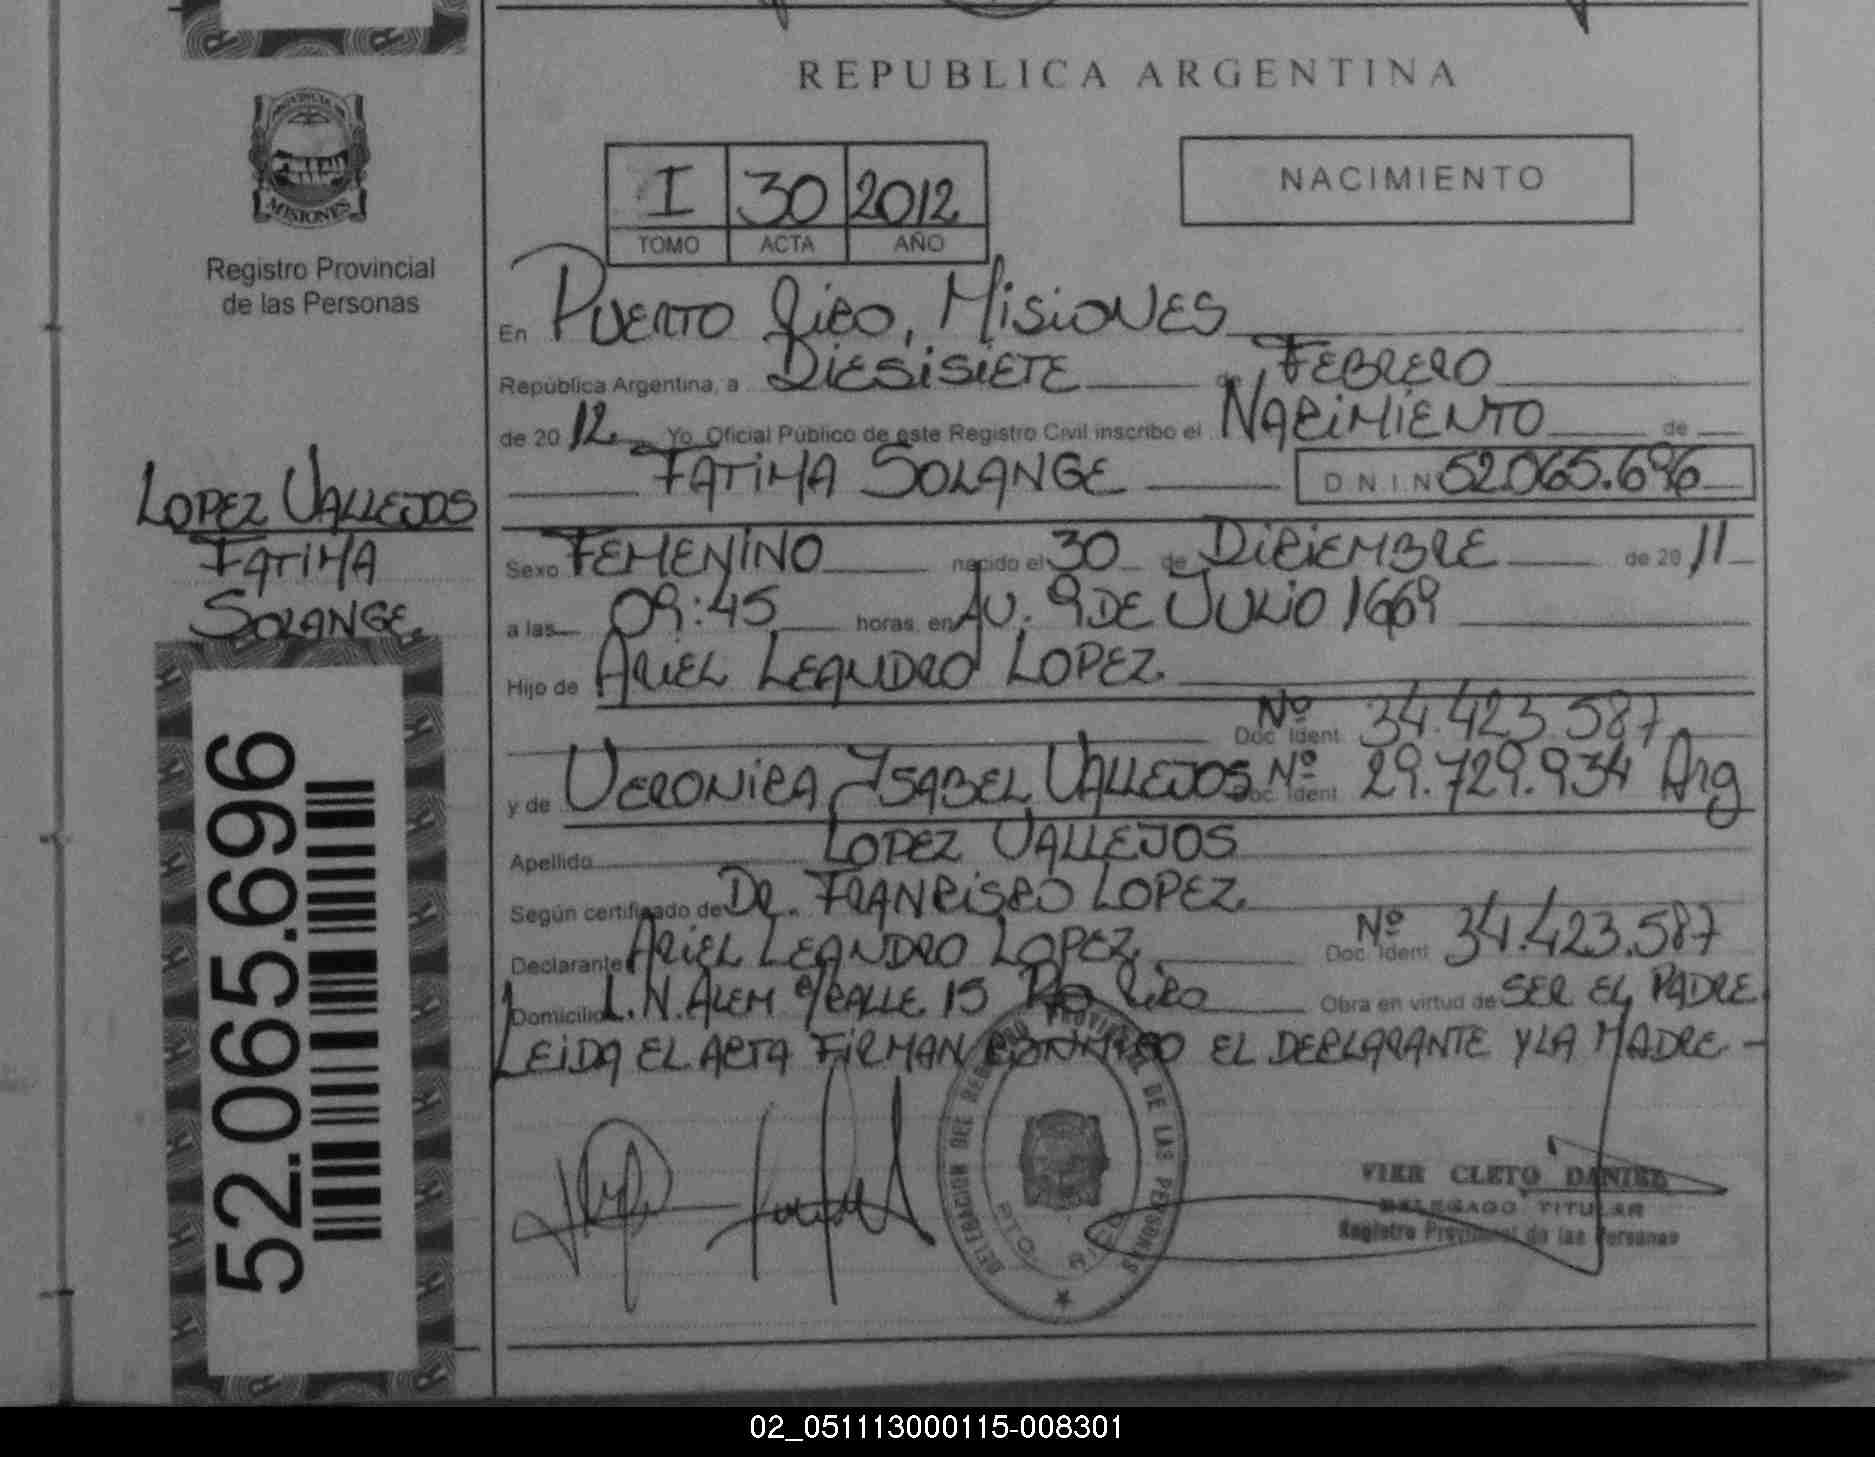 REPUBLICA ARGENTINA
NACIMIENTO
I 30 2012
TOMO ACTA AÑO
MISIONES
Registro Provincial
de las Personas
LOPEZ VALLEJOS
FATIMA
SOLANGE
52.065.696
En PUERTO RICO, MISIONES
República Argentina, a DIESISIETE de FEBRERO
de 2012 Yo Oficial Público de este Registro Civil inscribo el NACIMIENTO de
FATIMA SOLANGE DNI N 52.065.696
Sexo FEMENINO nacido el 30 de DICIEMBRE de 2011
a las 09:45 horas, en AV. 9 DE JULIO 1669
Hijo de ARIEL LEANDRO LOPEZ.
Nº Doc. Ident. 34.423.587
y de VERONICA YSABEL VALLEJOS Nº Doc. Ident. 29.729.934 Arg
Apellido LOPEZ VALLEJOS
Según certificado de DR. FRANCISCO LOPEZ.
Declarante ARIEL LEANDRO LOPEZ. Nº Doc. Ident. 34.423.587
Domicilio L.N. ALEM e/CALLE 15 Pto RICO Obra en virtud de SER EL PADRE.
LEIDA EL ACTA FIRMAN CONMIGO EL DECLARANTE Y LA MADRE -
DELEGACION DEL REGISTRO PROVINCIAL DE LAS PERSONAS
PTO. RICO
VIER CLETO DANIEL
DELEGADO TITULAR
Registro Provincial de las Personas
02_051113000115-008301